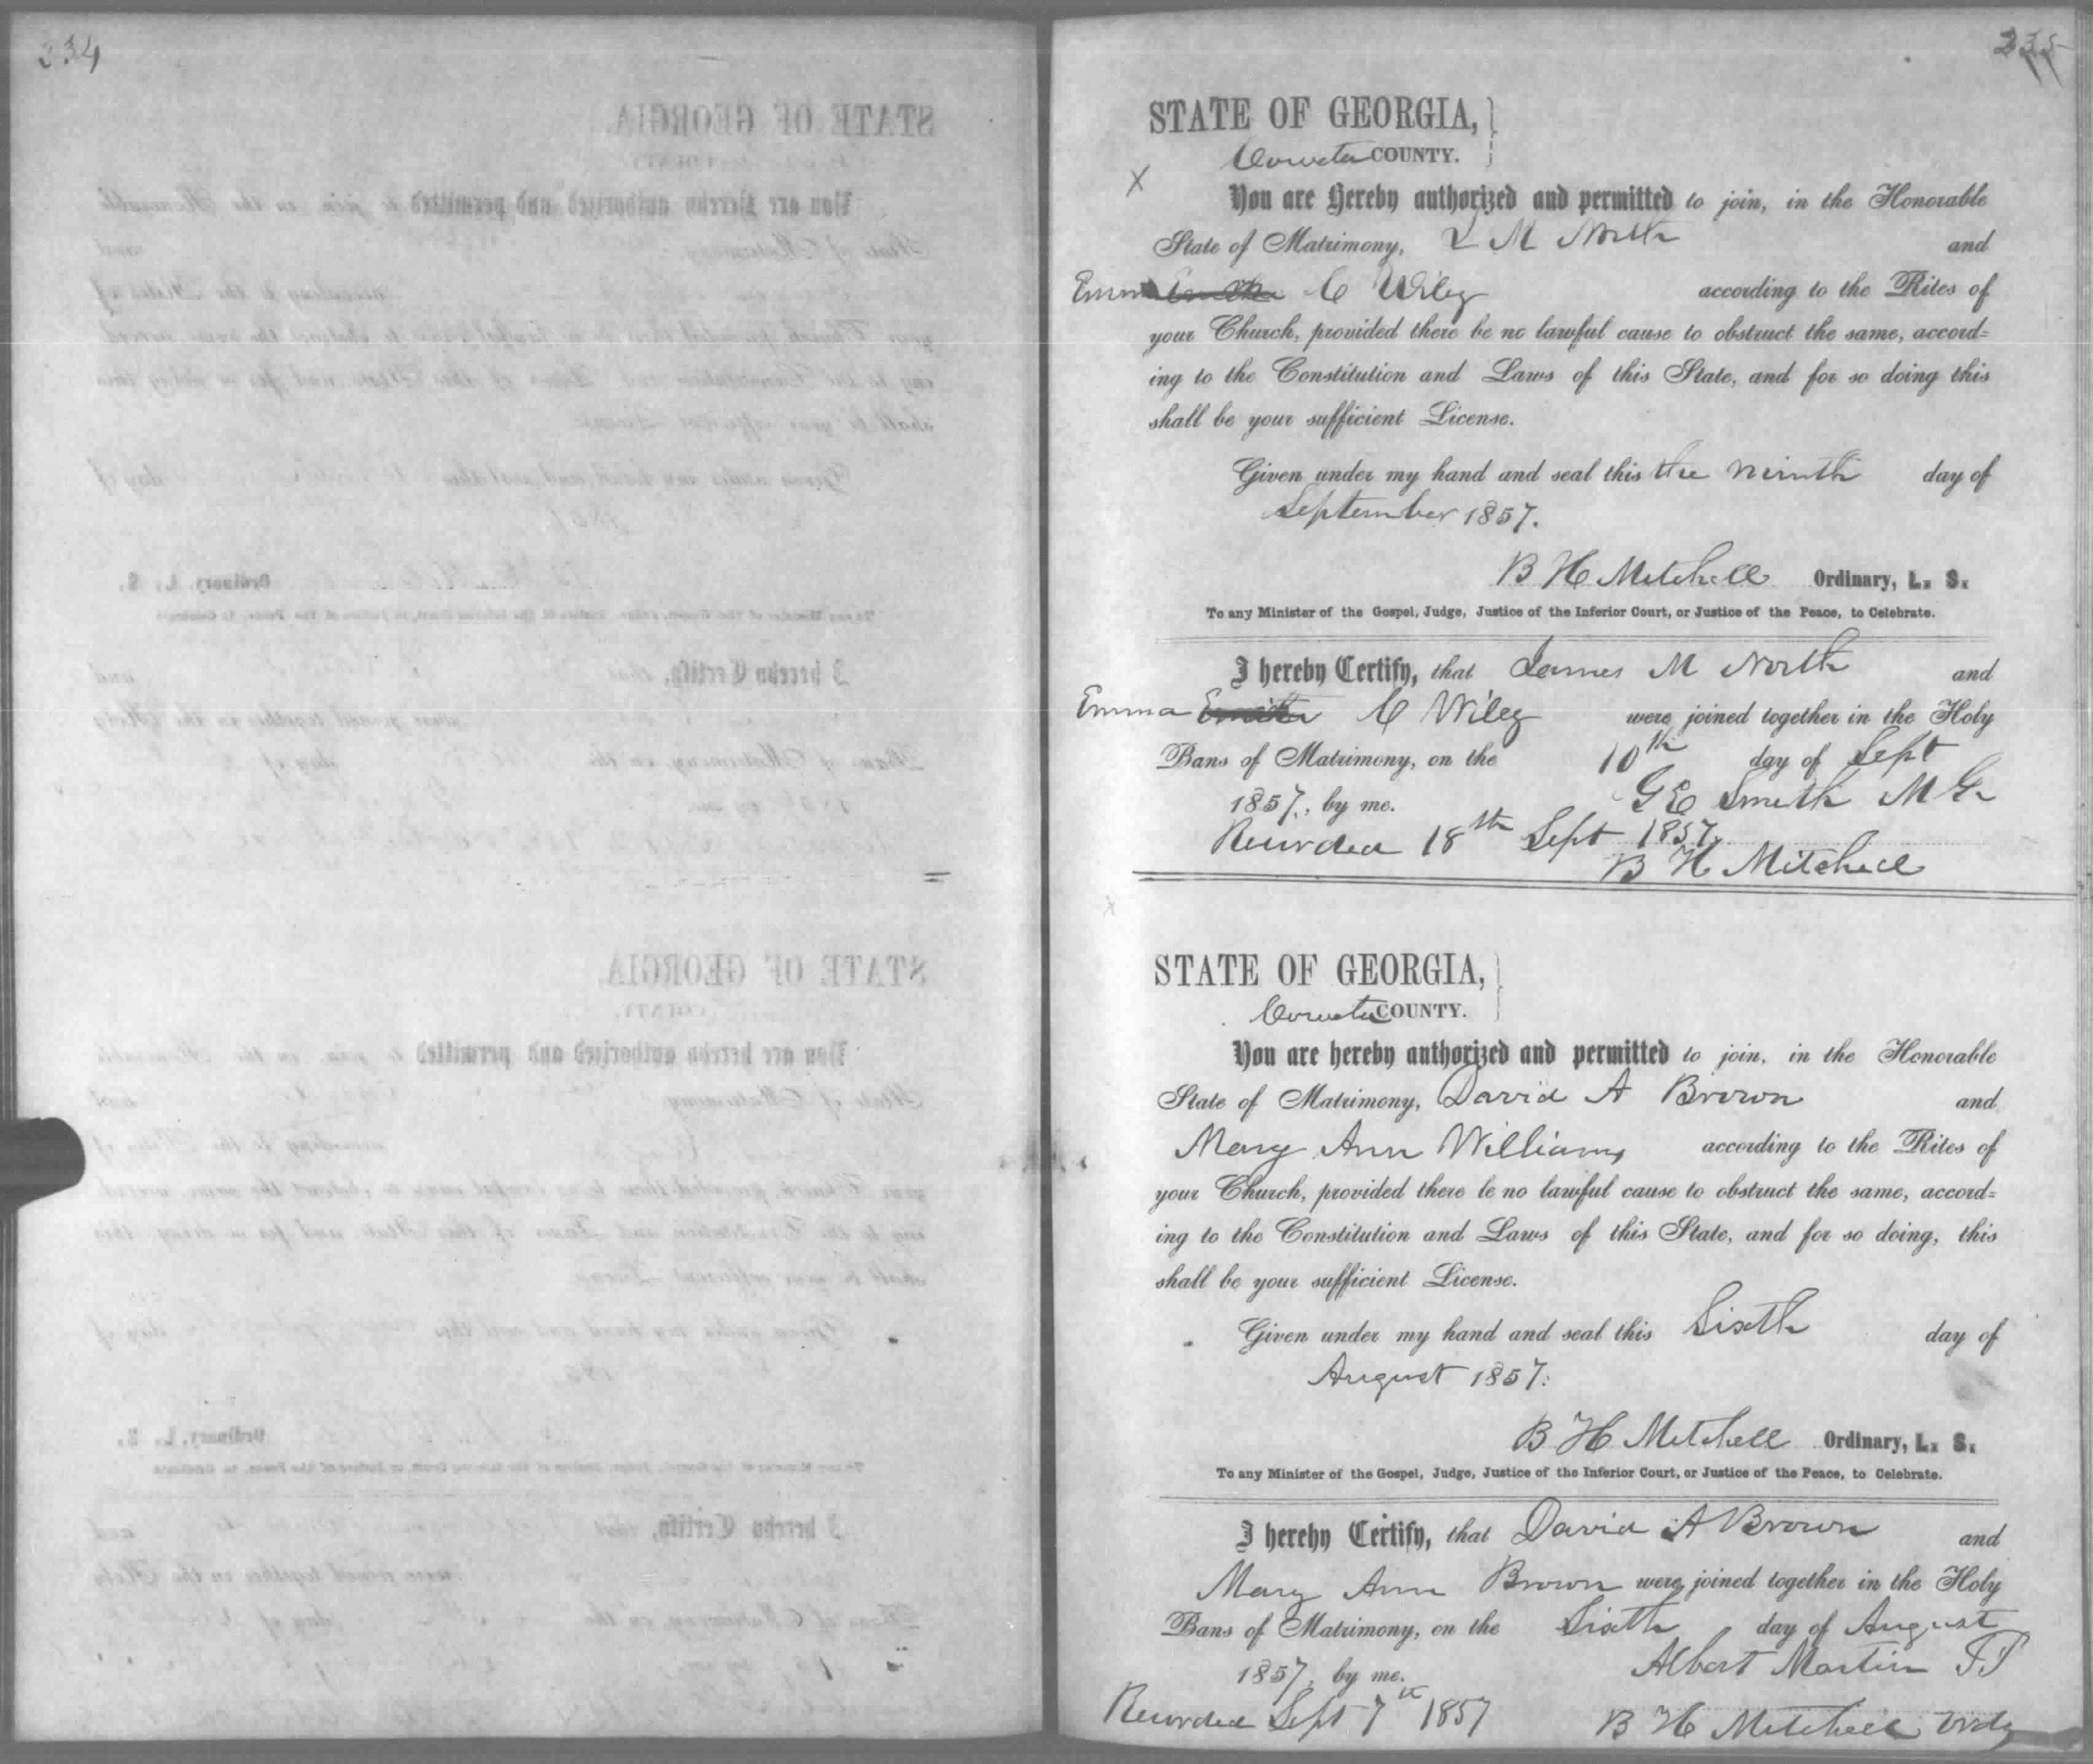 234
235
STATE OF GEORGIA,
Coweta COUNTY.
X
You are Hereby authorized and permitted to join, in the Honorable
State of Matrimony, M North and
Emma C Wiley according to the Rites of
your Church, provided there be no lawful cause to obstruct the same, accord-
ing to the Constitution and Laws of this State, and for so doing this
shall be your sufficient License.
Given under my hand and seal this the ninth day of
September 1857.
B H Mitchell Ordinary, L. S.
To any Minister of the Gospel, Judge, Justice of the Inferior Court, or Justice of the Peace, to Celebrate.
I hereby Certify, that James M North and
Emma C Wiley were joined together in the Holy
Bans of Matrimony, on the 10th day of Sept
1857, by me. G E Smith M G
Recorded 18th Sept 1857.
B H Mitchell
STATE OF GEORGIA,
Coweta COUNTY.
You are hereby authorized and permitted to join, in the Honorable
State of Matrimony, David A Brown and
Mary Ann Williams according to the Rites of
your Church, provided there be no lawful cause to obstruct the same, accord-
ing to the Constitution and Laws of this State, and for so doing, this
shall be your sufficient License.
Given under my hand and seal this Sixth day of
August 1857.
B H Mitchell Ordinary, L. S.
To any Minister of the Gospel, Judge, Justice of the Inferior Court, or Justice of the Peace, to Celebrate.
I hereby Certify, that David A Brown and
Mary Ann Brown were joined together in the Holy
Bans of Matrimony, on the Sixth day of August
1857, by me. Albert Martin JP
Recorded Sept 7th 1857 B H Mitchell Ordy